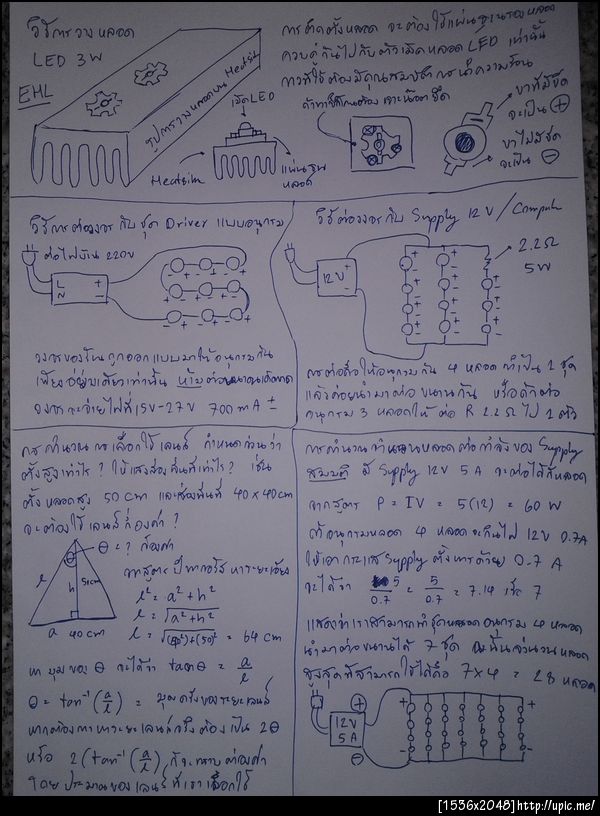 วิธีการวางหลอด
LED 3W
EHL
รูปการวางหลอดบน Heatsink
เม็ด LED
Heatsink
แผ่นฐาน
หลอด
การติดตั้งหลอด จะต้องใช้แผ่นฐานรองหลอด
ควบคู่กันไปกับตัวเม็ดหลอด LED เท่านั้น
ขาที่มีขีด
จะเป็น +
ขาไม่มีขีด
จะเป็น -
วิธีการต่อวงจรกับชุด Driver แบบอนุกรม
ต่อไฟบ้าน 220V
L + N -
วงจรของ
เพียงอย่างเดียวเท่านั้น ห้ามต่อขนานเด็ดขาด
วงจรจะจ่ายไฟที่ 15V-27V 700mA ±
วิธีต่อวงจรกับ Supply 12V/
12V + -
2.2Ω
5W
การต่อคือให้อนุกรมกัน 4 หลอด ทำเป็น 1 ชุด
แล้วค่อยนำมาต่อขนานกัน หรือถ้าต่อ
อนุกรม 3 หลอดให้ต่อ R 2.2Ω ไป 1 ตัว
การคำนวนการเลือกใช้เลนส์ กำหนดก่อนว่า
ตั้งสูงเท่าไร? ใช้แสงส่องพื้นที่เท่าไร? เช่น
ตั้งหลอดสูง 50 cm และส่องพื้นที่ 40x40cm
จะต้องใช้เลนส์กี่องศา?
θ = ? กี่องศา
จากสูตร ปีทากอรัส หาระยะเอียง
l² = a² + h²
l = √a² + h²
= 64 cm
l h 50cm
a 40 cm
หามุมของ θ จะได้ว่า tan θ = a/l
θ = tan⁻¹(a/l) = มุมครึ่งของระยะเลนส์
หากต้องการหาระยะเลนส์จริงต้องเป็น 2θ
หรือ 2(tan⁻¹(a/l)) ก็จะทราบค่าองศา
โดยประมาณของเลนส์ที่เราเลือกใช้
การคำนวนจำนวนหลอดต่อกำลังของ Supply
สมมติ มี Supply 12V 5A จะต่อได้กี่หลอด
จากสูตร P = IV = 5(12) = 60 W
ถ้าอนุกรมหลอด 4 หลอดจะกินไฟ 12V 0.7A
ให้เอากระแส Supply ตั้งหารด้วย 0.7 A
จะได้ว่า 5/0.7 = 5/0.7 = 7.14 คือ 7
แสดงว่าเราสามารถทำชุดหลอดอนุกรม 4 หลอด
นำมาต่อขนานได้ 7 ชุด ฉะนั้นจำนวนหลอด
สูงสุดที่สามารถใช้ได้คือ 7x4 = 28 หลอด
12V
5A
[1536x2048]http://upic.me/